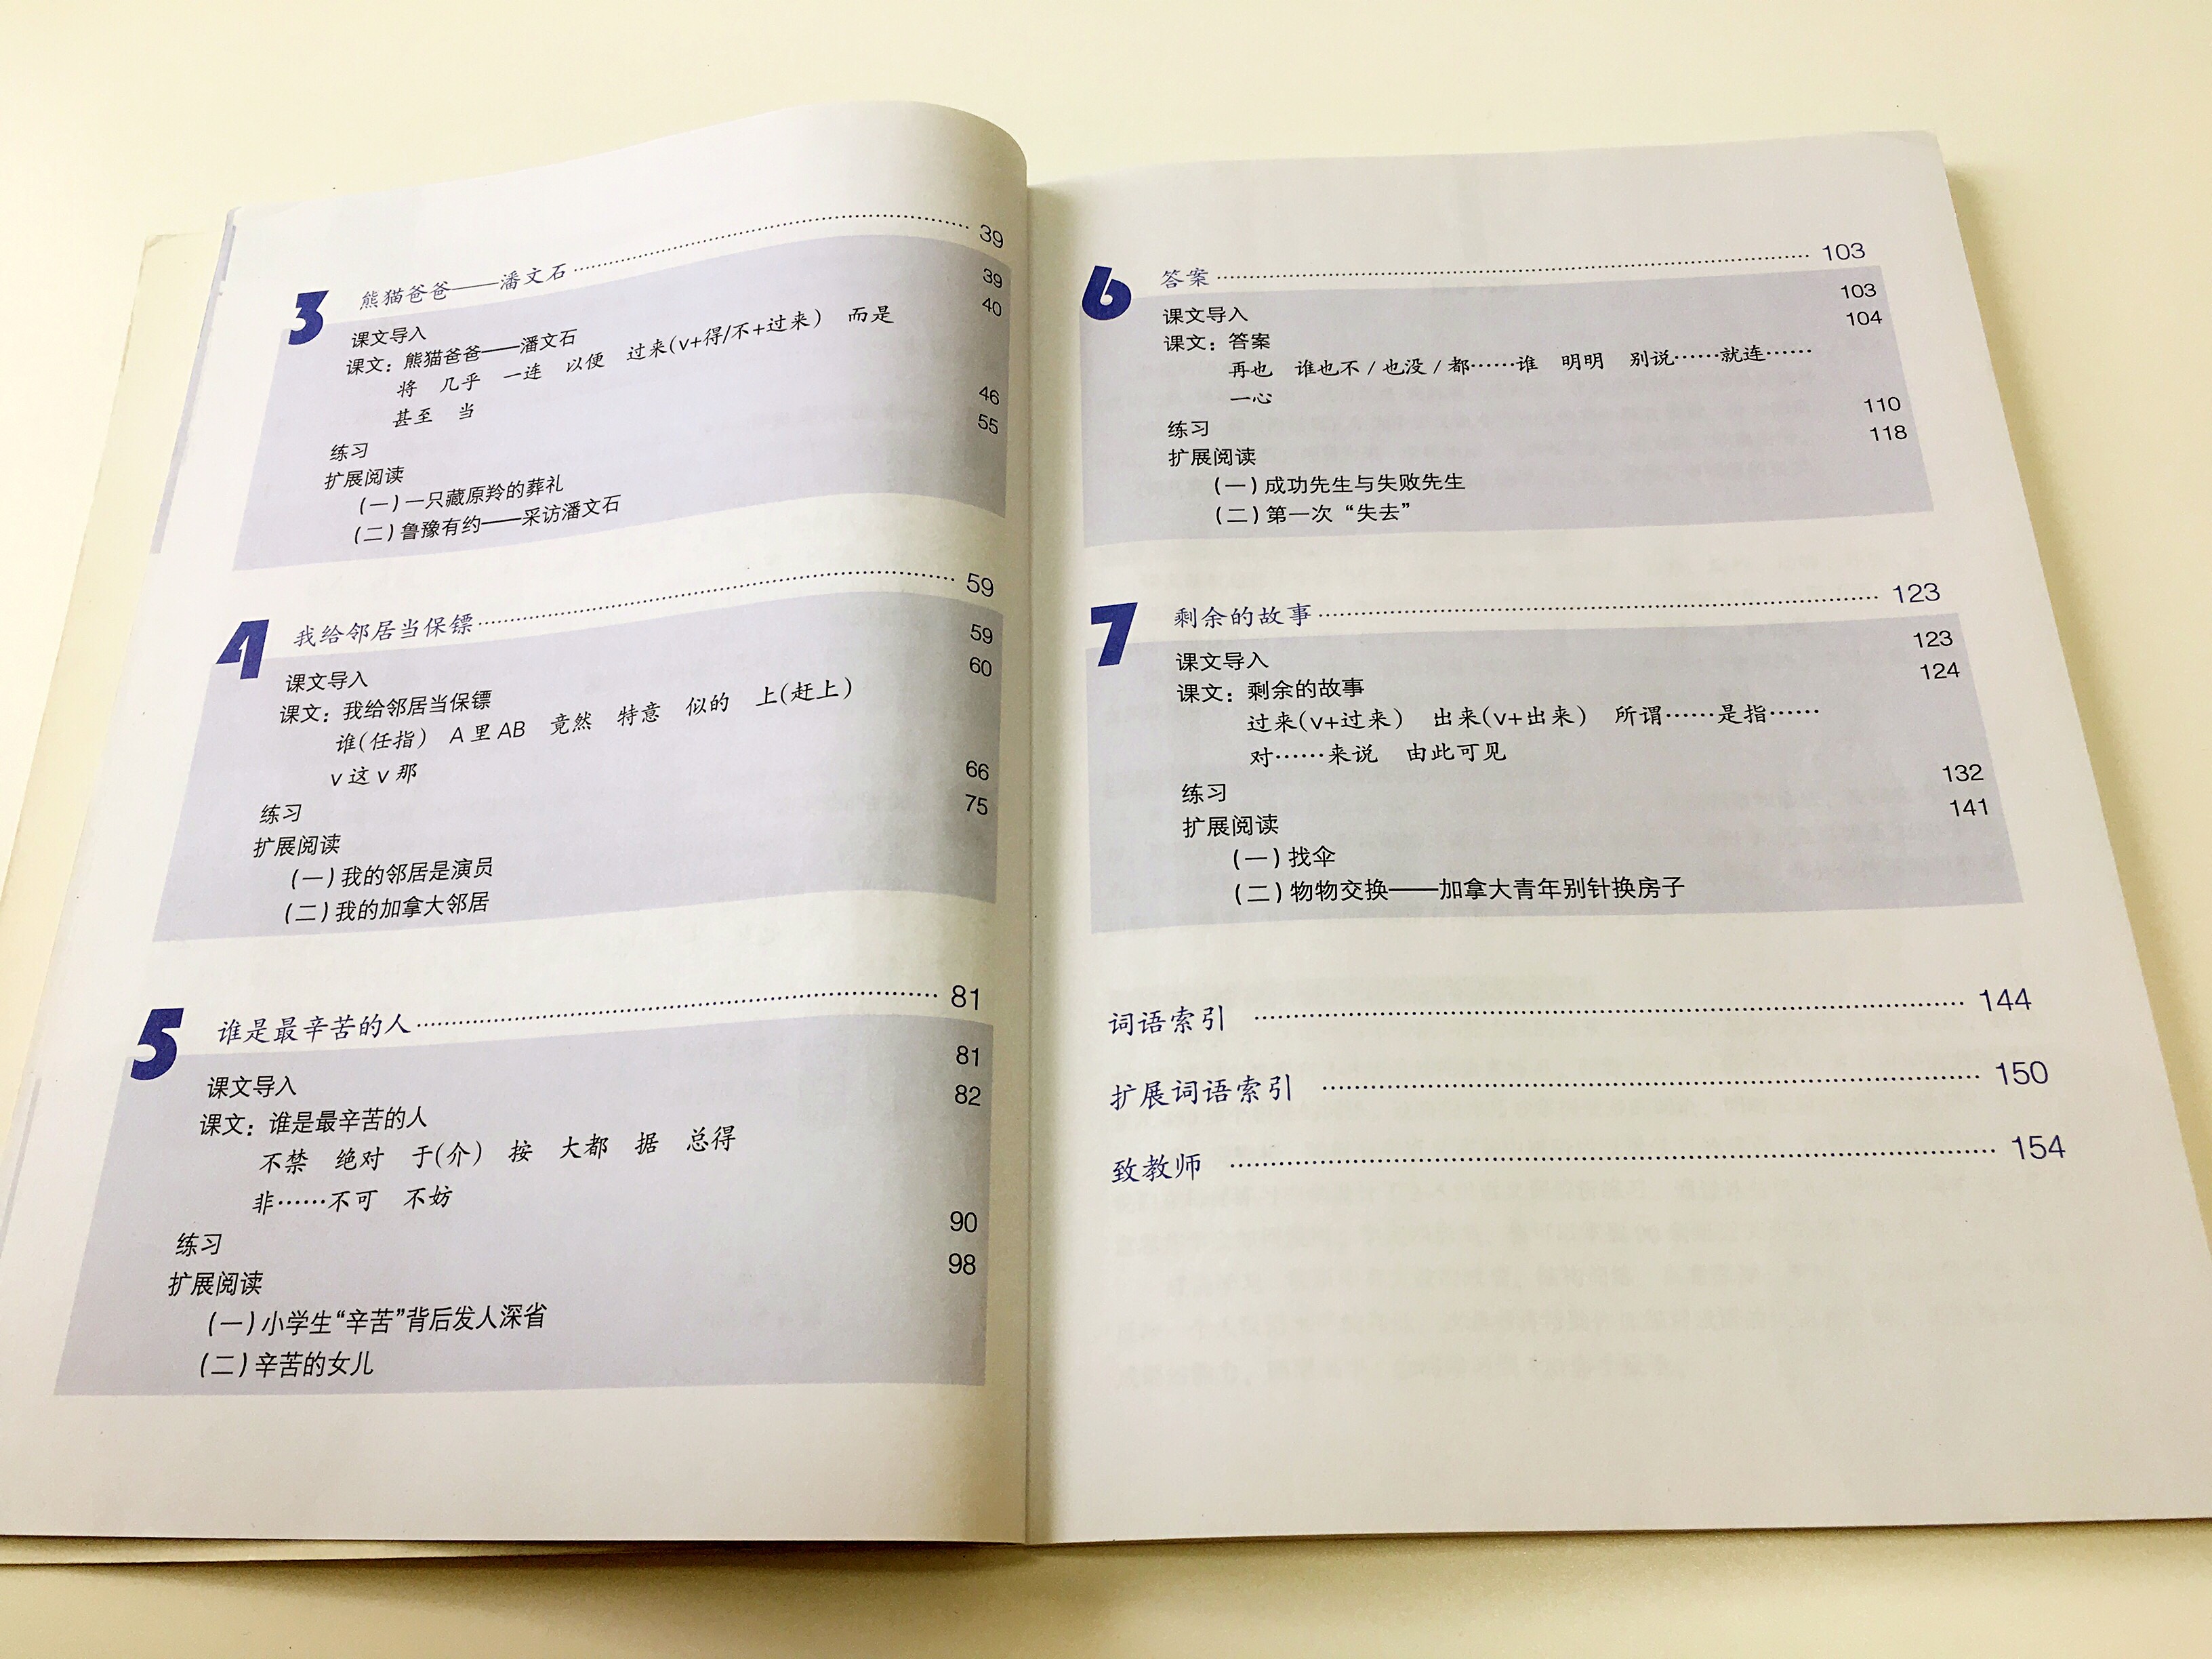 3 熊猫爸爸——潘文石 39
课文导入 39
课文：熊猫爸爸——潘文石 40
将 几乎 一连 以便 过来(v+得/不+过来) 而是
甚至 当
练习 46
扩展阅读 55
(一)一只藏原羚的葬礼
(二)鲁豫有约——采访潘文石
4 我给邻居当保镖 59
课文导入 59
课文：我给邻居当保镖 60
谁(任指) A里AB 竟然 特意 似的 上(赶上)
v这v那
练习 66
扩展阅读 75
(一)我的邻居是演员
(二)我的加拿大邻居
5 谁是最辛苦的人 81
课文导入 81
课文：谁是最辛苦的人 82
不禁 绝对 于(介) 按 大都 据 总得
非……不可 不妨
练习 90
扩展阅读 98
(一)小学生“辛苦”背后发人深省
(二)辛苦的女儿
6 答案 103
课文导入 103
课文：答案 104
再也 谁也不/也没/都……谁 明明 别说……就连……
一心
练习 110
扩展阅读 118
(一)成功先生与失败先生
(二)第一次“失去”
7 剩余的故事 123
课文导入 123
课文：剩余的故事 124
过来(v+过来) 出来(v+出来) 所谓……是指……
对……来说 由此可见
练习 132
扩展阅读 141
(一)找伞
(二)物物交换——加拿大青年别针换房子
词语索引 144
扩展词语索引 150
致教师 154